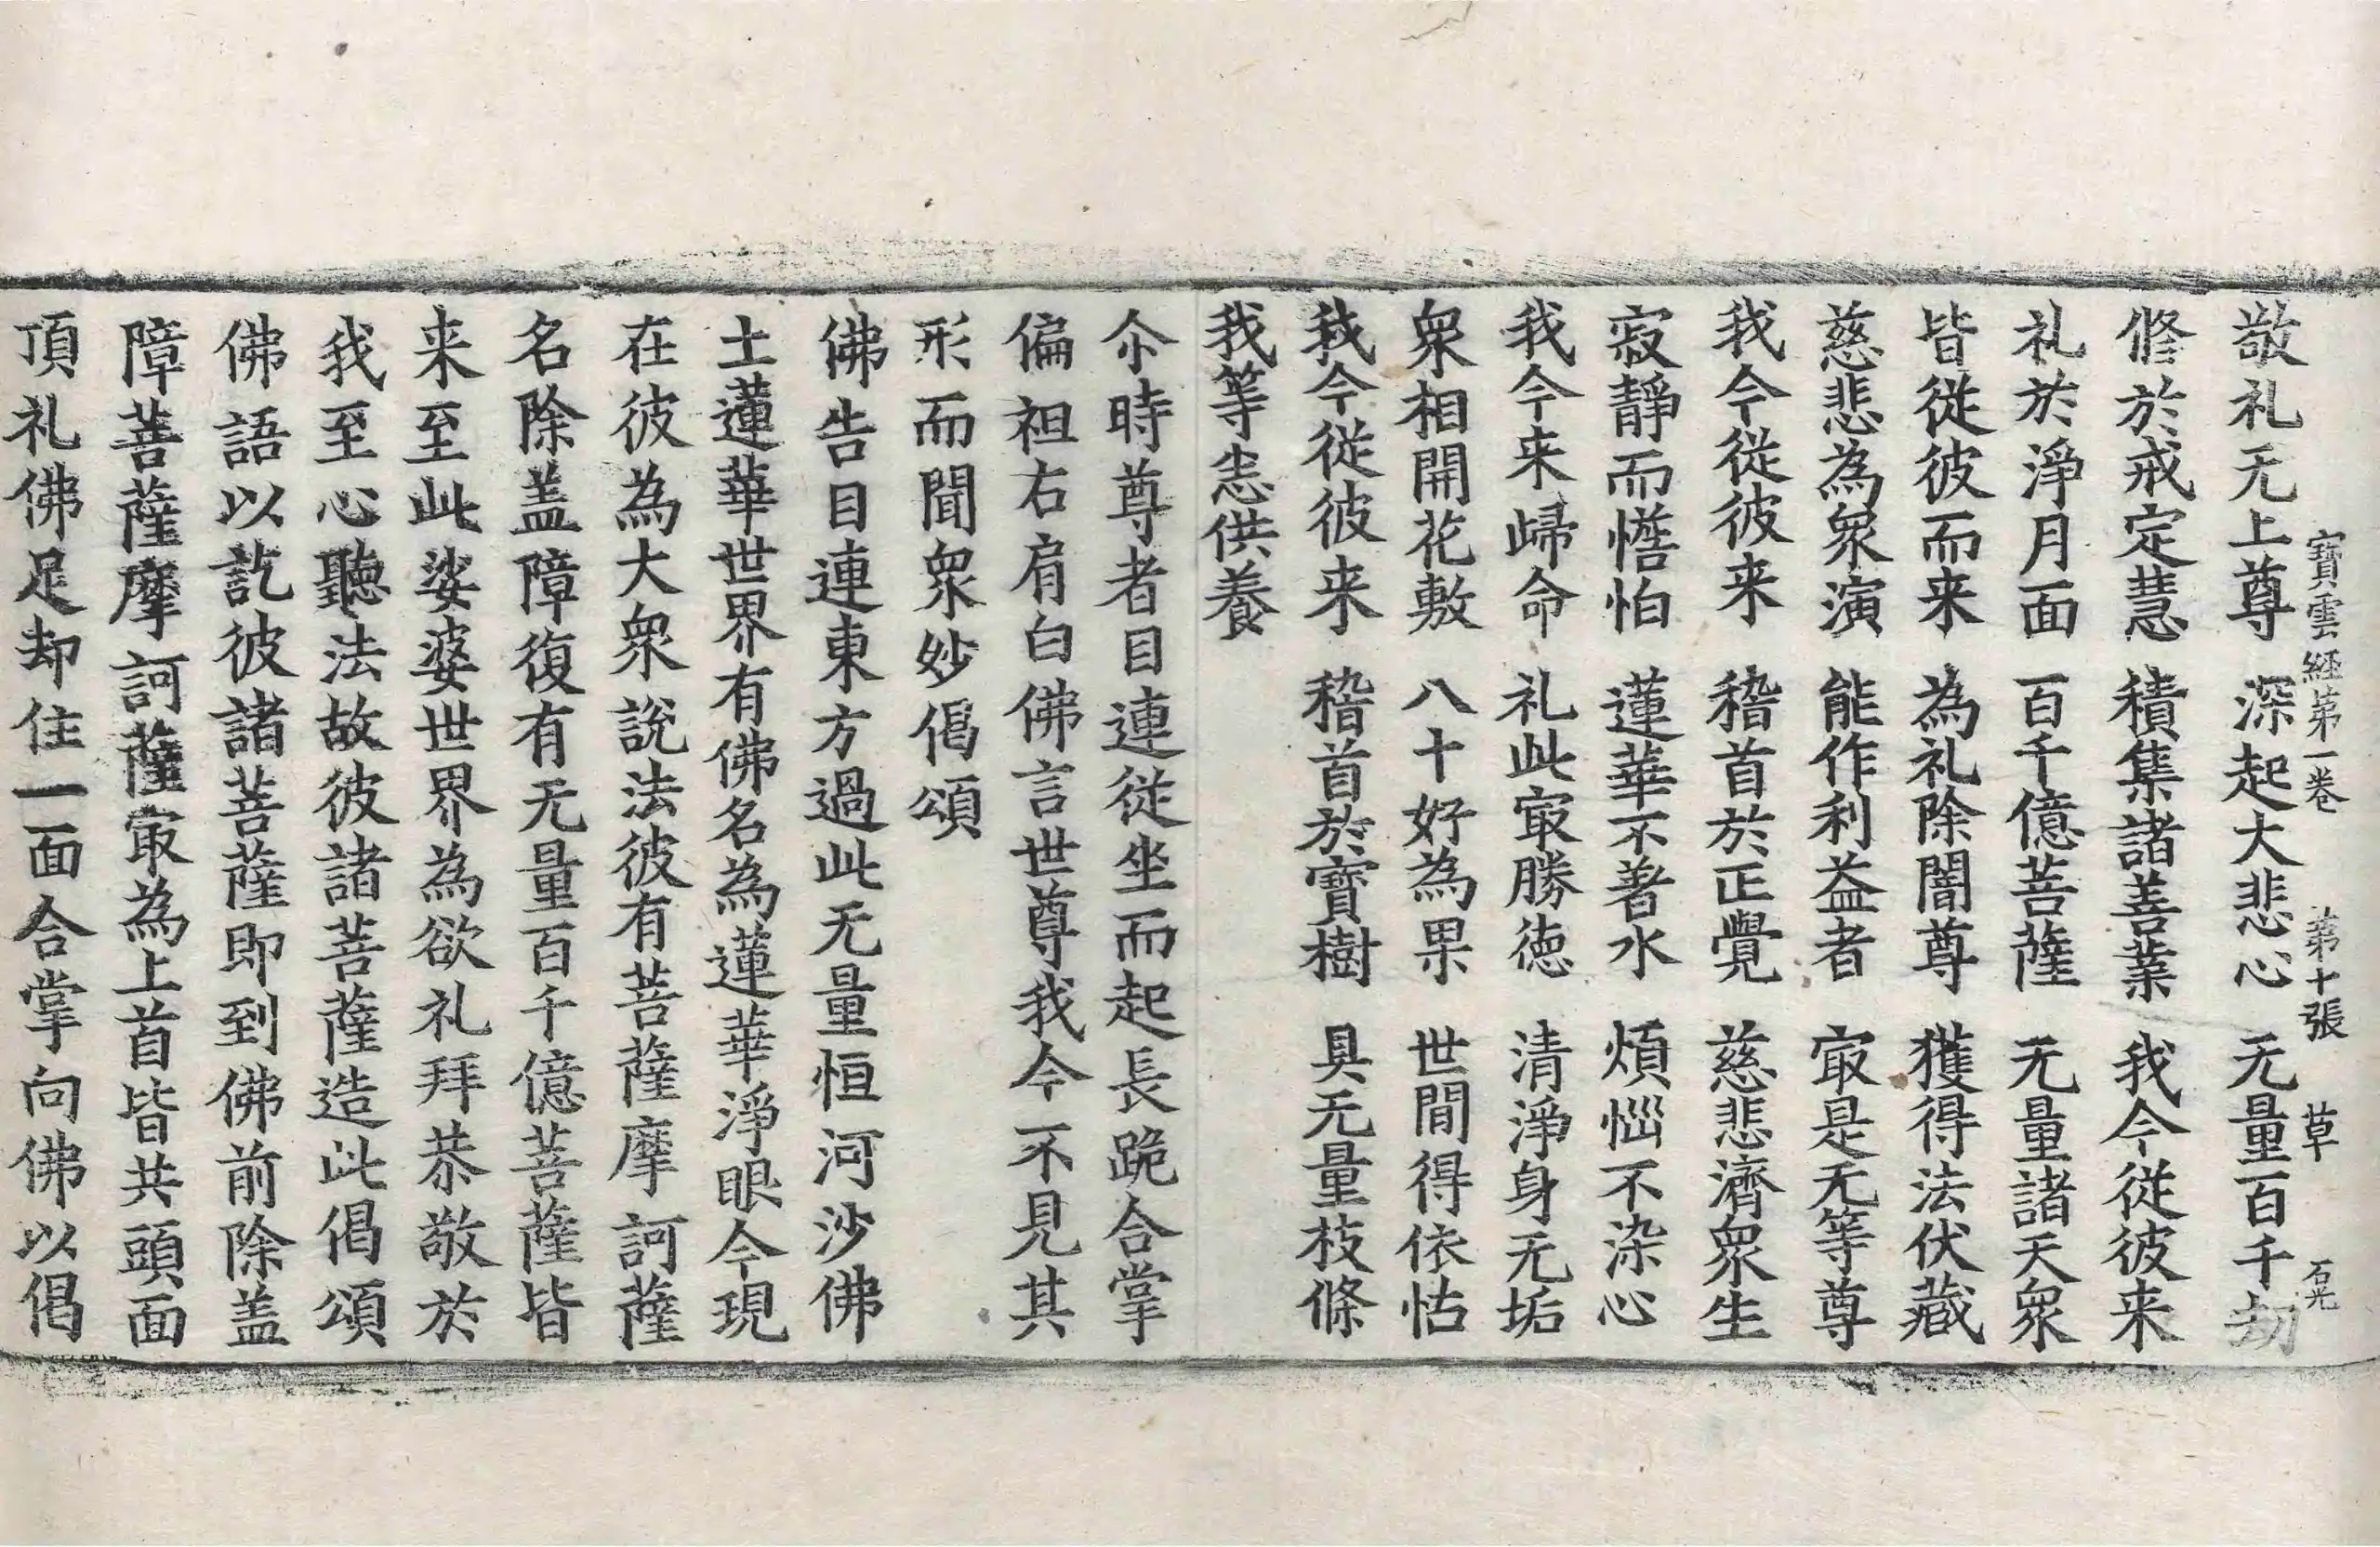 寶雲経第一卷　第十張　草　石光
敬礼无上尊　深起大悲心　无量百千劫
修於戒定慧　積集諸善業　我今従彼来
礼於淨月面　百千億菩薩　无量諸天衆
皆従彼而来　為礼除闇尊　獲得法伏藏
慈悲為衆演　能作利益者　㝡是无等尊
我今従彼来　稽首於正覺　慈悲濟衆生
寂靜而憺怕　蓮華不著水　煩惱不染心
我今来歸命　礼此㝡勝徳　清淨身无垢
衆相開花敷　八十好為果　世間得依怙
我今従彼来　稽首於寶樹　具无量枝條
我等恙供養
尒時尊者目連従坐而起長跪合掌
偏袒右肩白佛言世尊我今不見其
形而聞衆妙偈頌
佛告目連東方過此无量恒河沙佛
土蓮華世界有佛名為蓮華淨眼今現
在彼為大衆說法彼有菩薩摩訶薩
名除盖障復有无量百千億菩薩皆
来至此娑婆世界為欲礼拜恭敬於
我至心聽法故彼諸菩薩造此偈頌
佛語以訖彼諸菩薩即到佛前除盖
障菩薩摩訶薩㝡為上首皆共頭面
頂礼佛足却住一面合掌向佛以偈